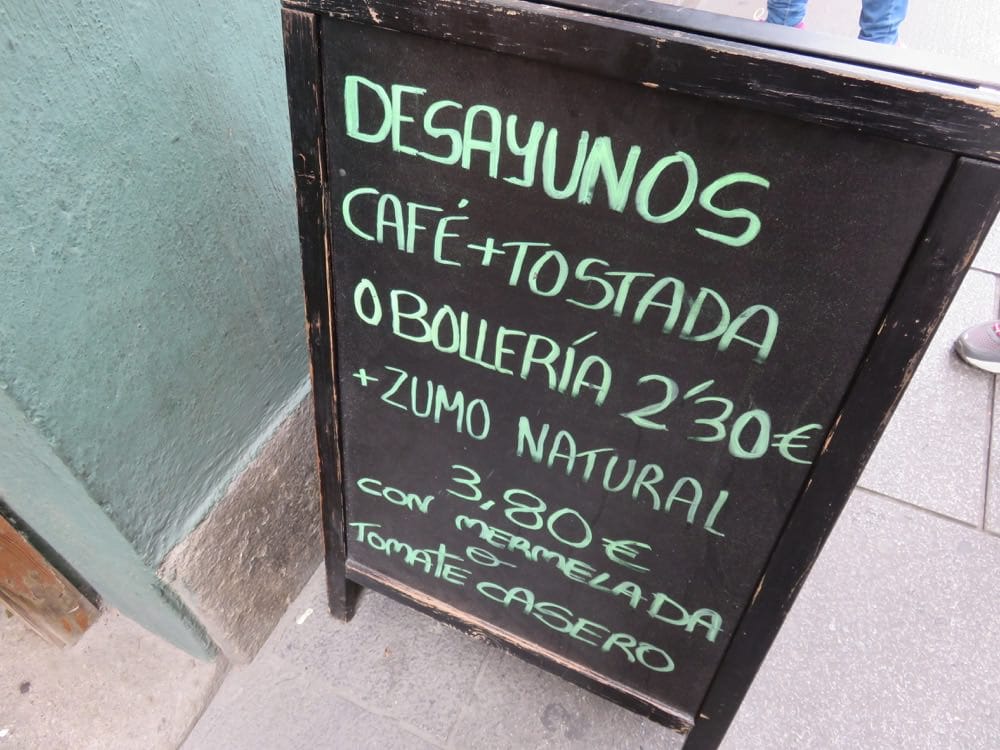 DESAYUNOS
CAFÉ+TOSTADA
O BOLLERÍA 2'30€
+ZUMO NATURAL
3,80 €
CON MERMELADA
O
TOMATE CASERO